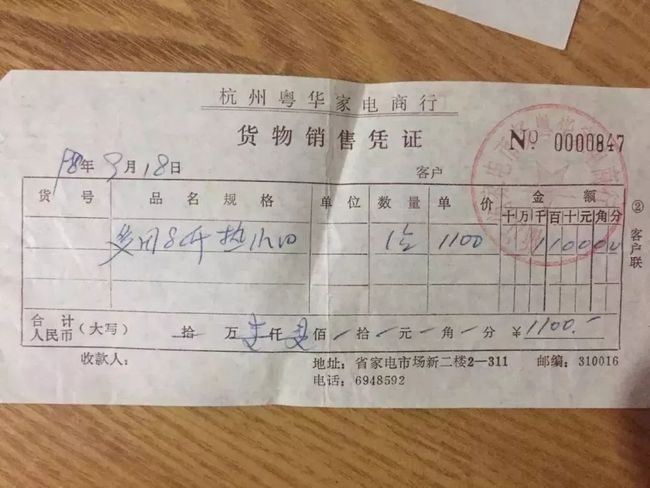 杭州粤华家电商行
货物销售凭证 No 0000847
98年9月18日 客户
货号 品名规格 单位 数量 单价 金额 ②客户联
十万千百十元角分
8升热水 1 1100 110000
合计人民币(大写) 拾 万 壹仟 壹佰 拾 元 角 分 ¥1100.-
收款人: 地址:省家电市场新二楼2—311 邮编:310016
电话:6948592